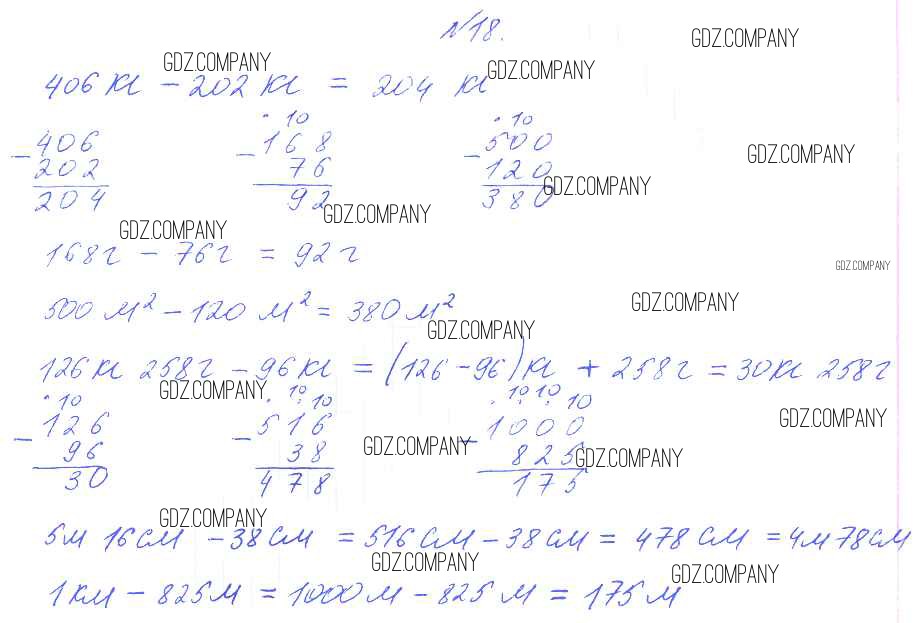 №18.
GDZ.COMPANY
GDZ.COMPANY GDZ.COMPANY
406 кг - 202 кг = 204 кг
10 10
- 406 - 168 - 500
GDZ.COMPANY
202 76 120
GDZ.COMPANY
204 92 380
GDZ.COMPANY
GDZ.COMPANY
168 г - 76 г = 92 г
GDZ.COMPANY
500 м² - 120 м² = 380 м²
GDZ.COMPANY
GDZ.COMPANY
126 кг 258 г - 96 кг = (126 - 96) кг + 258 г = 30 кг 258 г
GDZ.COMPANY
10 10 10 10 10 10
- 126 - 516 - 1000
GDZ.COMPANY
GDZ.COMPANY
96 38 825
GDZ.COMPANY
30 478 175
GDZ.COMPANY
5 м 16 см - 38 см = 516 см - 38 см = 478 см = 4 м 78 см
GDZ.COMPANY GDZ.COMPANY
1 км - 825 м = 1000 м - 825 м = 175 м